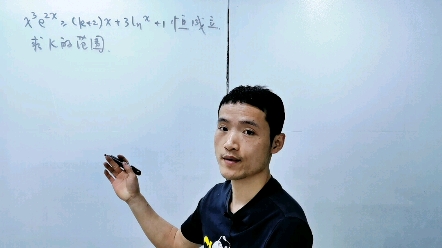 x³e²ˣ ≥ (k+2)x + 3lnx + 1 恒成立
求 K 的范围.